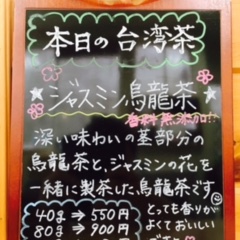 本日の台湾茶
ジャスミン烏龍茶
香料無添加!!
深い味わいの茎部分の
烏龍茶と、ジャスミンの花を
一緒に製茶した、烏龍茶です
40g ⇒ 550円
80g ⇒ 900円
とっても香りが
よくておいしい